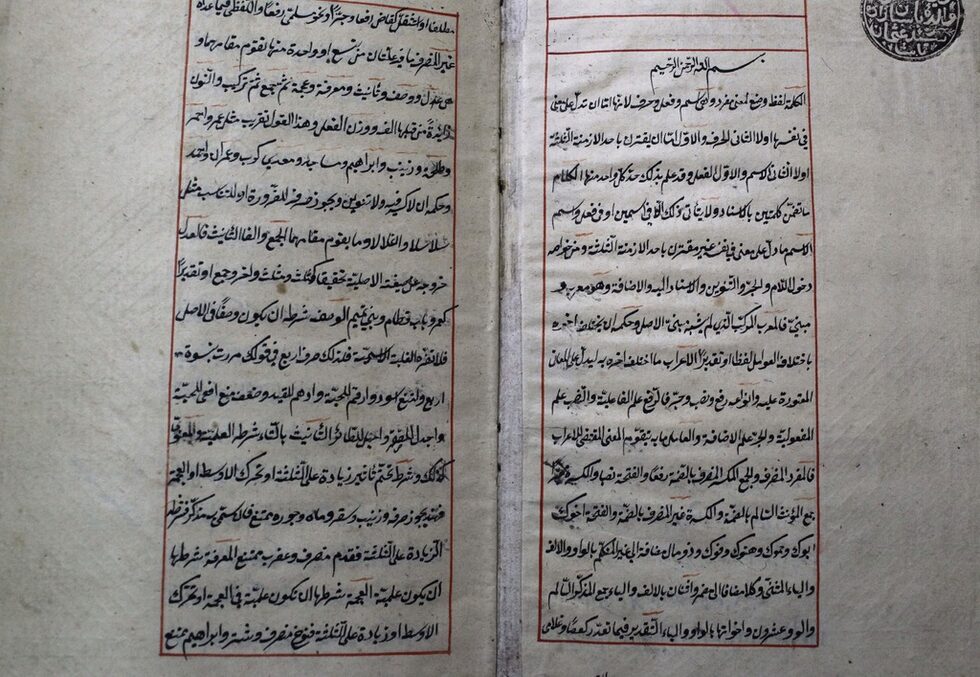 بسم الله الرحمن الرحيم
الكلمة لفظ وضع لمعنى مفرد وهى اسم وفعل وحرف لانها اما ان تدل على معنى
فى نفسها او لا الثانى الحرف والاول اما ان يقترن باحد الازمنة الثلثة
او لا الثانى الاسم والاول الفعل وقد علم بذلك حد كل واحد منها الكلام
ما تضمن كلمتين بالاسناد ولا يتأتى ذلك الا فى اسمين او فى فعل واسم
الاسم ما دل على معنى فى نفسه غير مقترن باحد الازمنة الثلثة ومن خواصه
دخول اللام والجر والتنوين والاسناد اليه والاضافة وهو معرب و
مبنى فالمعرب المركب الذى لم يشبه مبنى الاصل وحكمه ان يختلف اخره
باختلاف العوامل لفظا او تقديرا الاعراب ما اختلف اخره به ليدل على المعانى
المعتورة عليه وانواعه رفع ونصب وجر فالرفع علم الفاعلية والنصب علم
المفعولية والجر علم الاضافة والعامل ما به يتقوم المعنى المقتضى للاعراب
فالمفرد المنصرف والجمع المكسر المنصرف بالضمة رفعا والفتحة نصبا والكسرة جرا
جمع المؤنث السالم بالضمة والكسرة غير المنصرف بالضمة والفتحة اخوك
ابوك وحموك وهنوك وفوك وذو مال مضافة الى غير ياء المتكلم بالواو والالف
والياء المثنى وكلا مضافا الى مضمر واثنان بالالف والياء جمع المذكر السالم
والو وعشرون واخواتها بالواو والياء التقدير فيما تعذر كعصا وغلامى
مطلقا او استثقل كقاض رفعا وجرا ونحو مسلمى رفعا واللفظى فيما عداه
غير المنصرف ما فيه علتان من تسع او واحدة منها تقوم مقامهما و
هى عدل ووصف وتأنيث ومعرفة وعجمة ثم جمع ثم تركيب والنون
زائدة من قبلها الف ووزن الفعل وهذا القول تقريب مثل عمر واحمر
وطلحة وزينب وابراهيم ومساجد ومعدى كرب وعمران واحمد
وحكمه ان لا كسر فيه ولا تنوين ويجوز صرفه للضرورة او للتناسب مثل
سلاسلا واغلالا وما يقوم مقامهما الجمع والفا التانيث فالعدل
خروجه عن صيغته الاصلية تحقيقا كثلث ومثلث واخر وجمع او تقديرا
كعمر وباب قطام وبنى تميم الوصف شرطه ان يكون وصفا فى الاصل
فلا تضره الغلبة الاسمية فلذلك صرف اربع فى قولك مررت بنسوة
اربع وامتنع اسود وارقم للحية وادهم للقيد وضعف منع افعى للحية
واجدل للصقر واخيل للطائر التانيث بالتاء شرطه العلمية والمعنوى
كذلك وشرط تحتم تأثيره زيادة على الثلثة او تحرك الاوسط او العجمة
فهند يجوز صرفه وزينب وسقر وماه وجور ممتنع فان سمى به مذكر فشرطه
الزيادة على الثلثة فقدم منصرف وعقرب ممتنع المعرفة شرطها
ان يكون علمية العجمة شرطها ان تكون علمية فى العجمة او تحرك
الاوسط او زيادة على الثلثة فنوح منصرف وشتر وابراهيم ممتنع